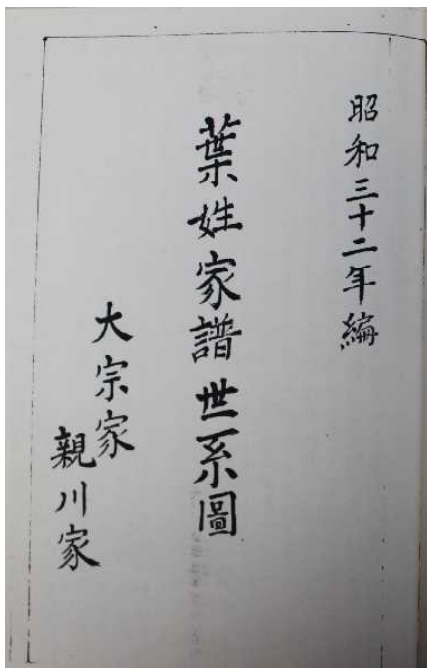 昭和三十二年編
葉姓家譜世系圖
大宗家
親川家